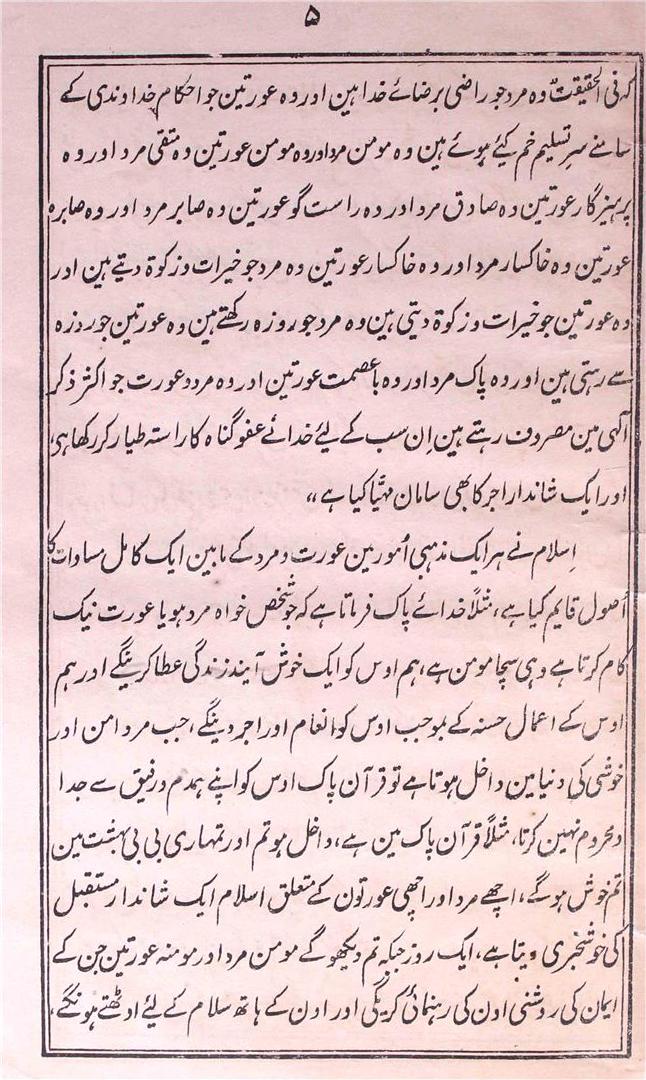 ۵
کہ فی الحقیقت وہ مرد جو راضی برضائے خدا ہین اور وہ عورتین جو احکام خداوندی کے
سامنے سر تسلیم خم کیئے ہوئے ہین وہ مومن مرد اور وہ مومن عورتین وہ متقی مرد اور وہ
پرہیزگار عورتین وہ صادق مرد اور وہ راست گو عورتین وہ صابر مرد اور وہ صابرہ
عورتین وہ خاکسار مرد اور وہ خاکسار عورتین وہ مرد جو خیرات و زکوۃ دیتے ہین اور
وہ عورتین جو خیرات و زکوۃ دیتی ہین وہ مرد جو روزہ رکھتے ہین وہ عورتین جو روزہ
سے رہتی ہین اور وہ پاک مرد اور وہ با عصمت عورتین اور وہ مرد و عورت جو اکثر ذکر
آلہی مین مصروف رہتے ہین اِن سب کے لیئے خدائے عفو گناہ کا راستہ طیار کر رکھا ہی،
اور ایک شاندار اجر کا بھی سامان مہیّا کیا ہے ،،
اِسلام نے ہر ایک مذہبی اُمور مین عورت و مرد کے مابین ایک کامل مساوات کا
اُصول قایم کیا ہے، مثلاً خدائے پاک فرماتا ہے کہ جو شخص خواہ مرد ہو یا عورت نیک
کام کرتا ہے وہی سچا مومن ہے، ہم اوس کو ایک خوش آیند زندگی عطا کرینگے اور ہم
اوس کے اعمال حسنہ کے بموجب اوس کو انعام اور اجر دینگے، جب مرد امن اور
خوشی کی دنیا مین داخل ہوتا ہے تو قرآن پاک اوس کو اپنے ہمدم و رفیق سے جدا
و محروم نہین کرتا، مثلاً قرآن پاک مین ہے، داخل ہو تم اور تمہاری بی بی بہشت مین
تم خوش ہو گے، اچھے مرد اور اچھی عورتون کے متعلق اسلام ایک شاندار مستقبل
کی خوشخبری دیتا ہے، ایک روز جبکہ تم دیکھو گے مومن مرد اور مومنہ عورتین جن کے
ایمان کی روشنی اون کی رہنمائی کریگی اور اون کے ہاتھ سلام کے لیئے اوٹھتے ہونگے،